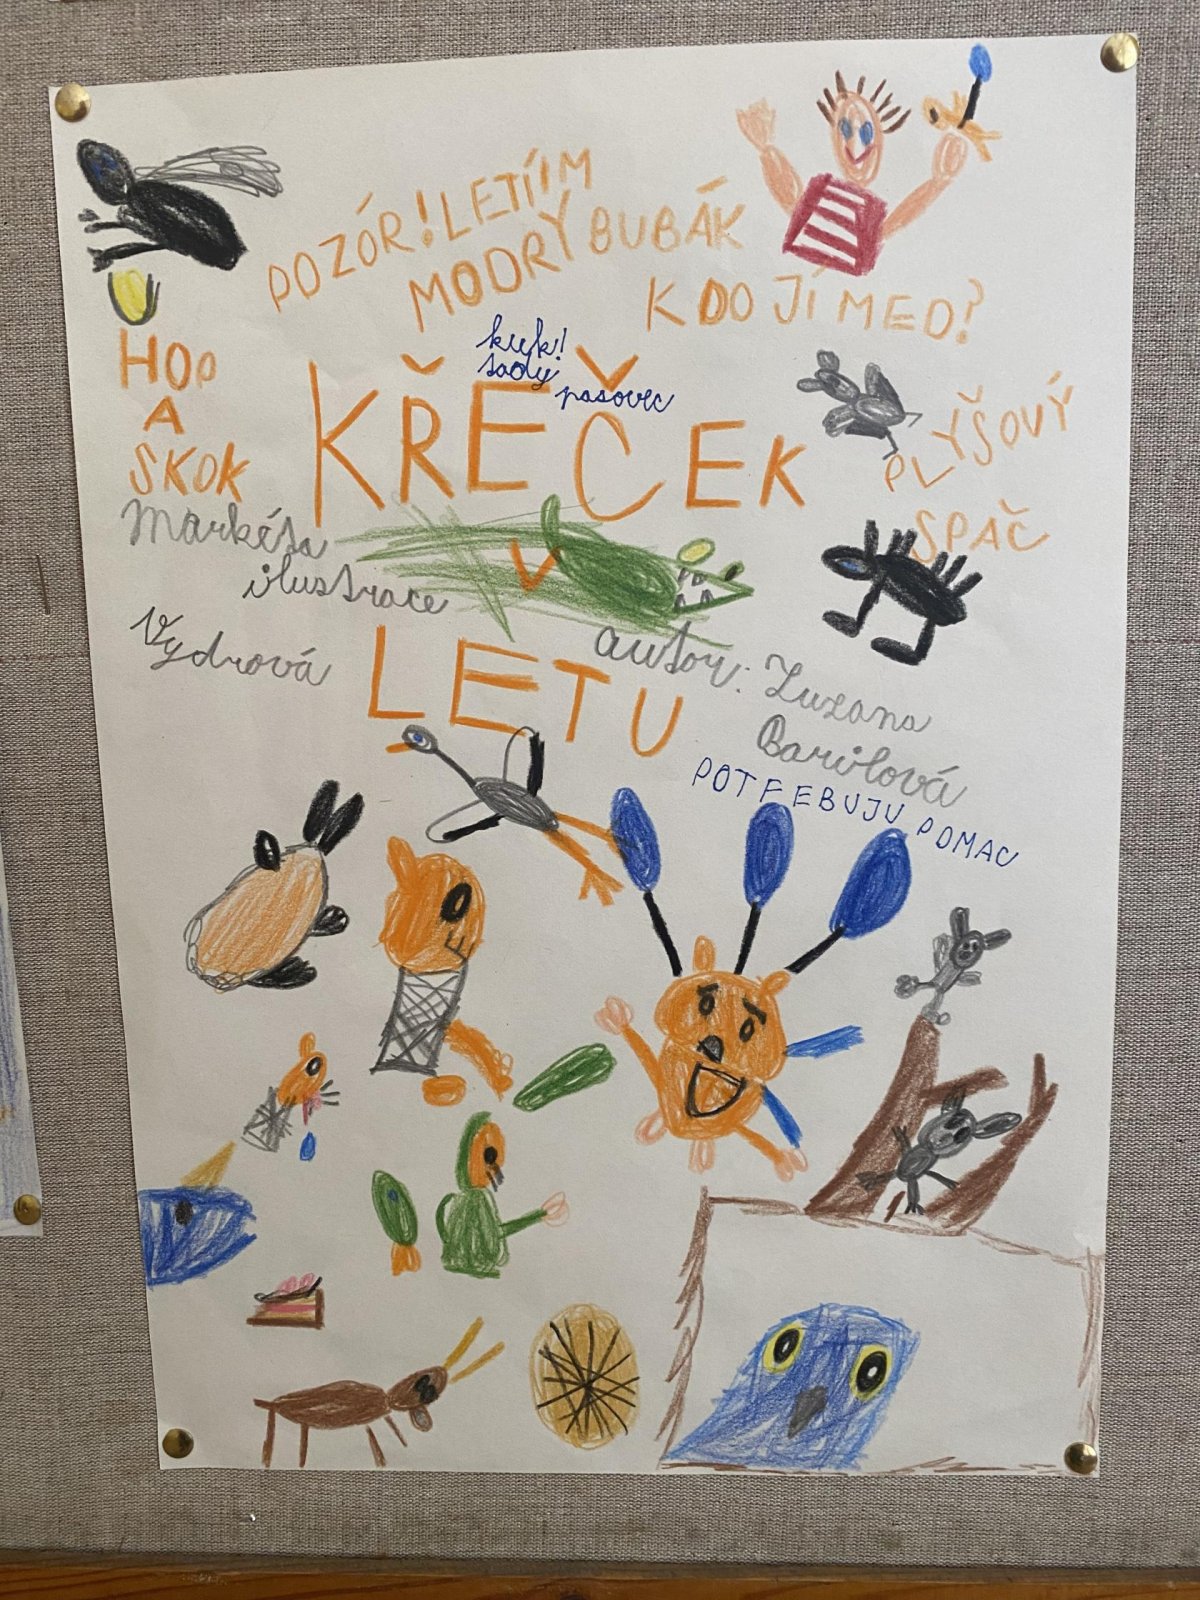 POZÓR! LETÍÍM
MODRÝ BUBÁK
KDO JÍ MED?
HOP
A
SKOK
kuk!
sady
psovec
KŘEČEK
PLYŠOVÝ
SPAČ
V
LETU
Markéta
ilustrace
Vydrová
autor: Zuzana
Barilová
POTŘEBUJU POMAC